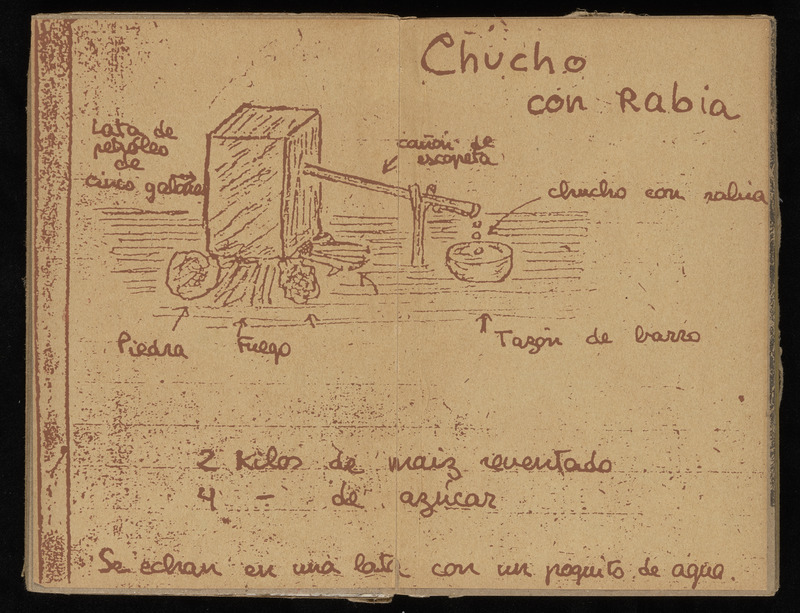 Chucho
con Rabia
Lata de
petróleo
de
cinco galones
cañon de
escopeta
chucho con rabia
Piedra
Fuego
Tazón de barro
2 kilos de maiz reventado
4 - de azúcar
Se echan en una lata con un poquito de agua.